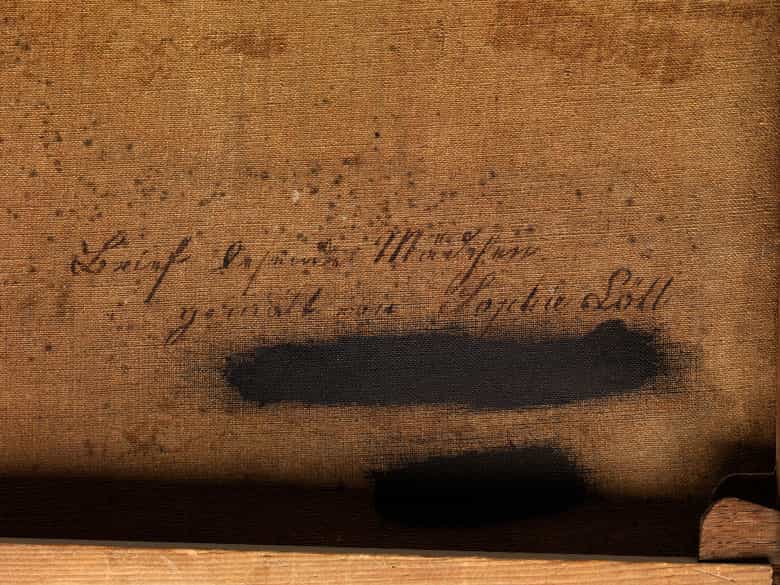 Brief lesendes Mädchen
gemalt von Sophie Löll